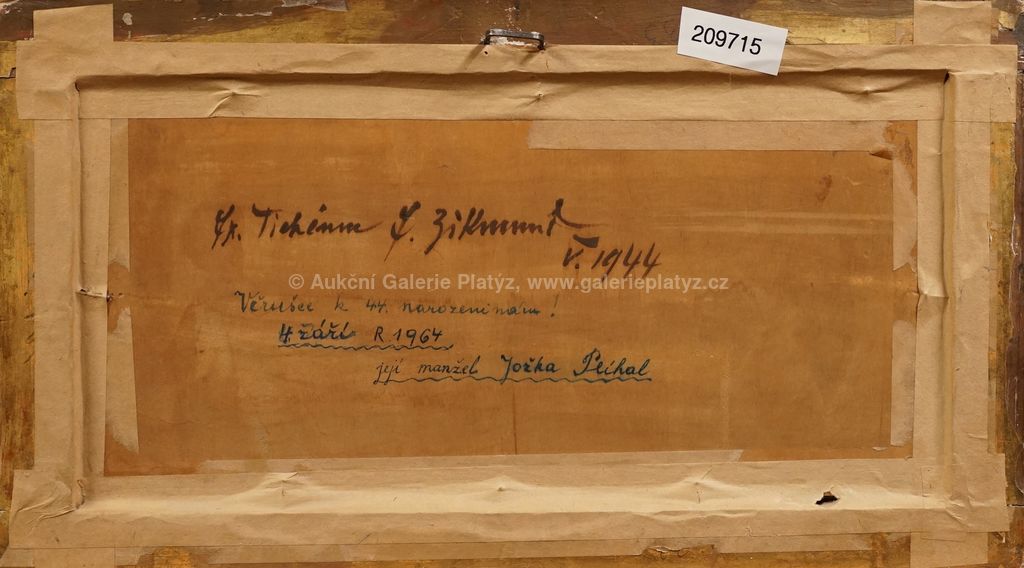 209715
Fr. Tichému F. Zikmund
V. 1944
© Aukční Galerie Platýz, www.galerieplatyz.cz
Věrušce k 44. narozeninám!
4. září R. 1964
její manžel Jožka Plíhal